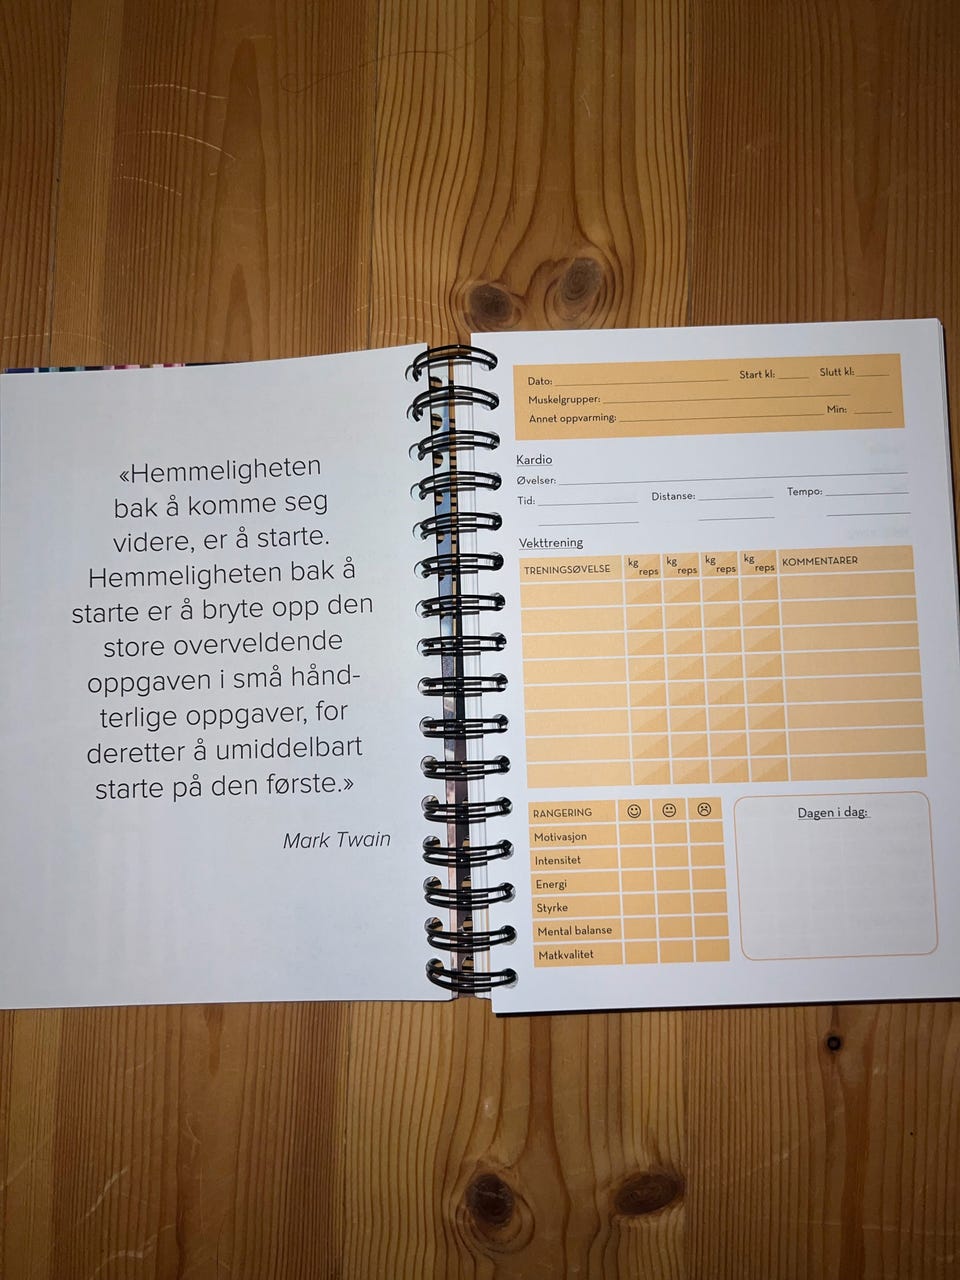 «Hemmeligheten
bak å komme seg
videre, er å starte.
Hemmeligheten bak å
starte er å bryte opp den
store overveldende
oppgaven i små hånd-
terlige oppgaver, for
deretter å umiddelbart
starte på den første.»
Mark Twain
Dato: Start kl: Slutt kl:
Muskelgrupper:
Annet oppvarming: Min:
Kardio
Øvelser:
Tid: Distanse: Tempo:
Vekttrening
TRENINGSØVELSE kg reps kg reps kg reps kg reps KOMMENTARER
RANGERING
Motivasjon
Intensitet
Energi
Styrke
Mental balanse
Matkvalitet
Dagen i dag: